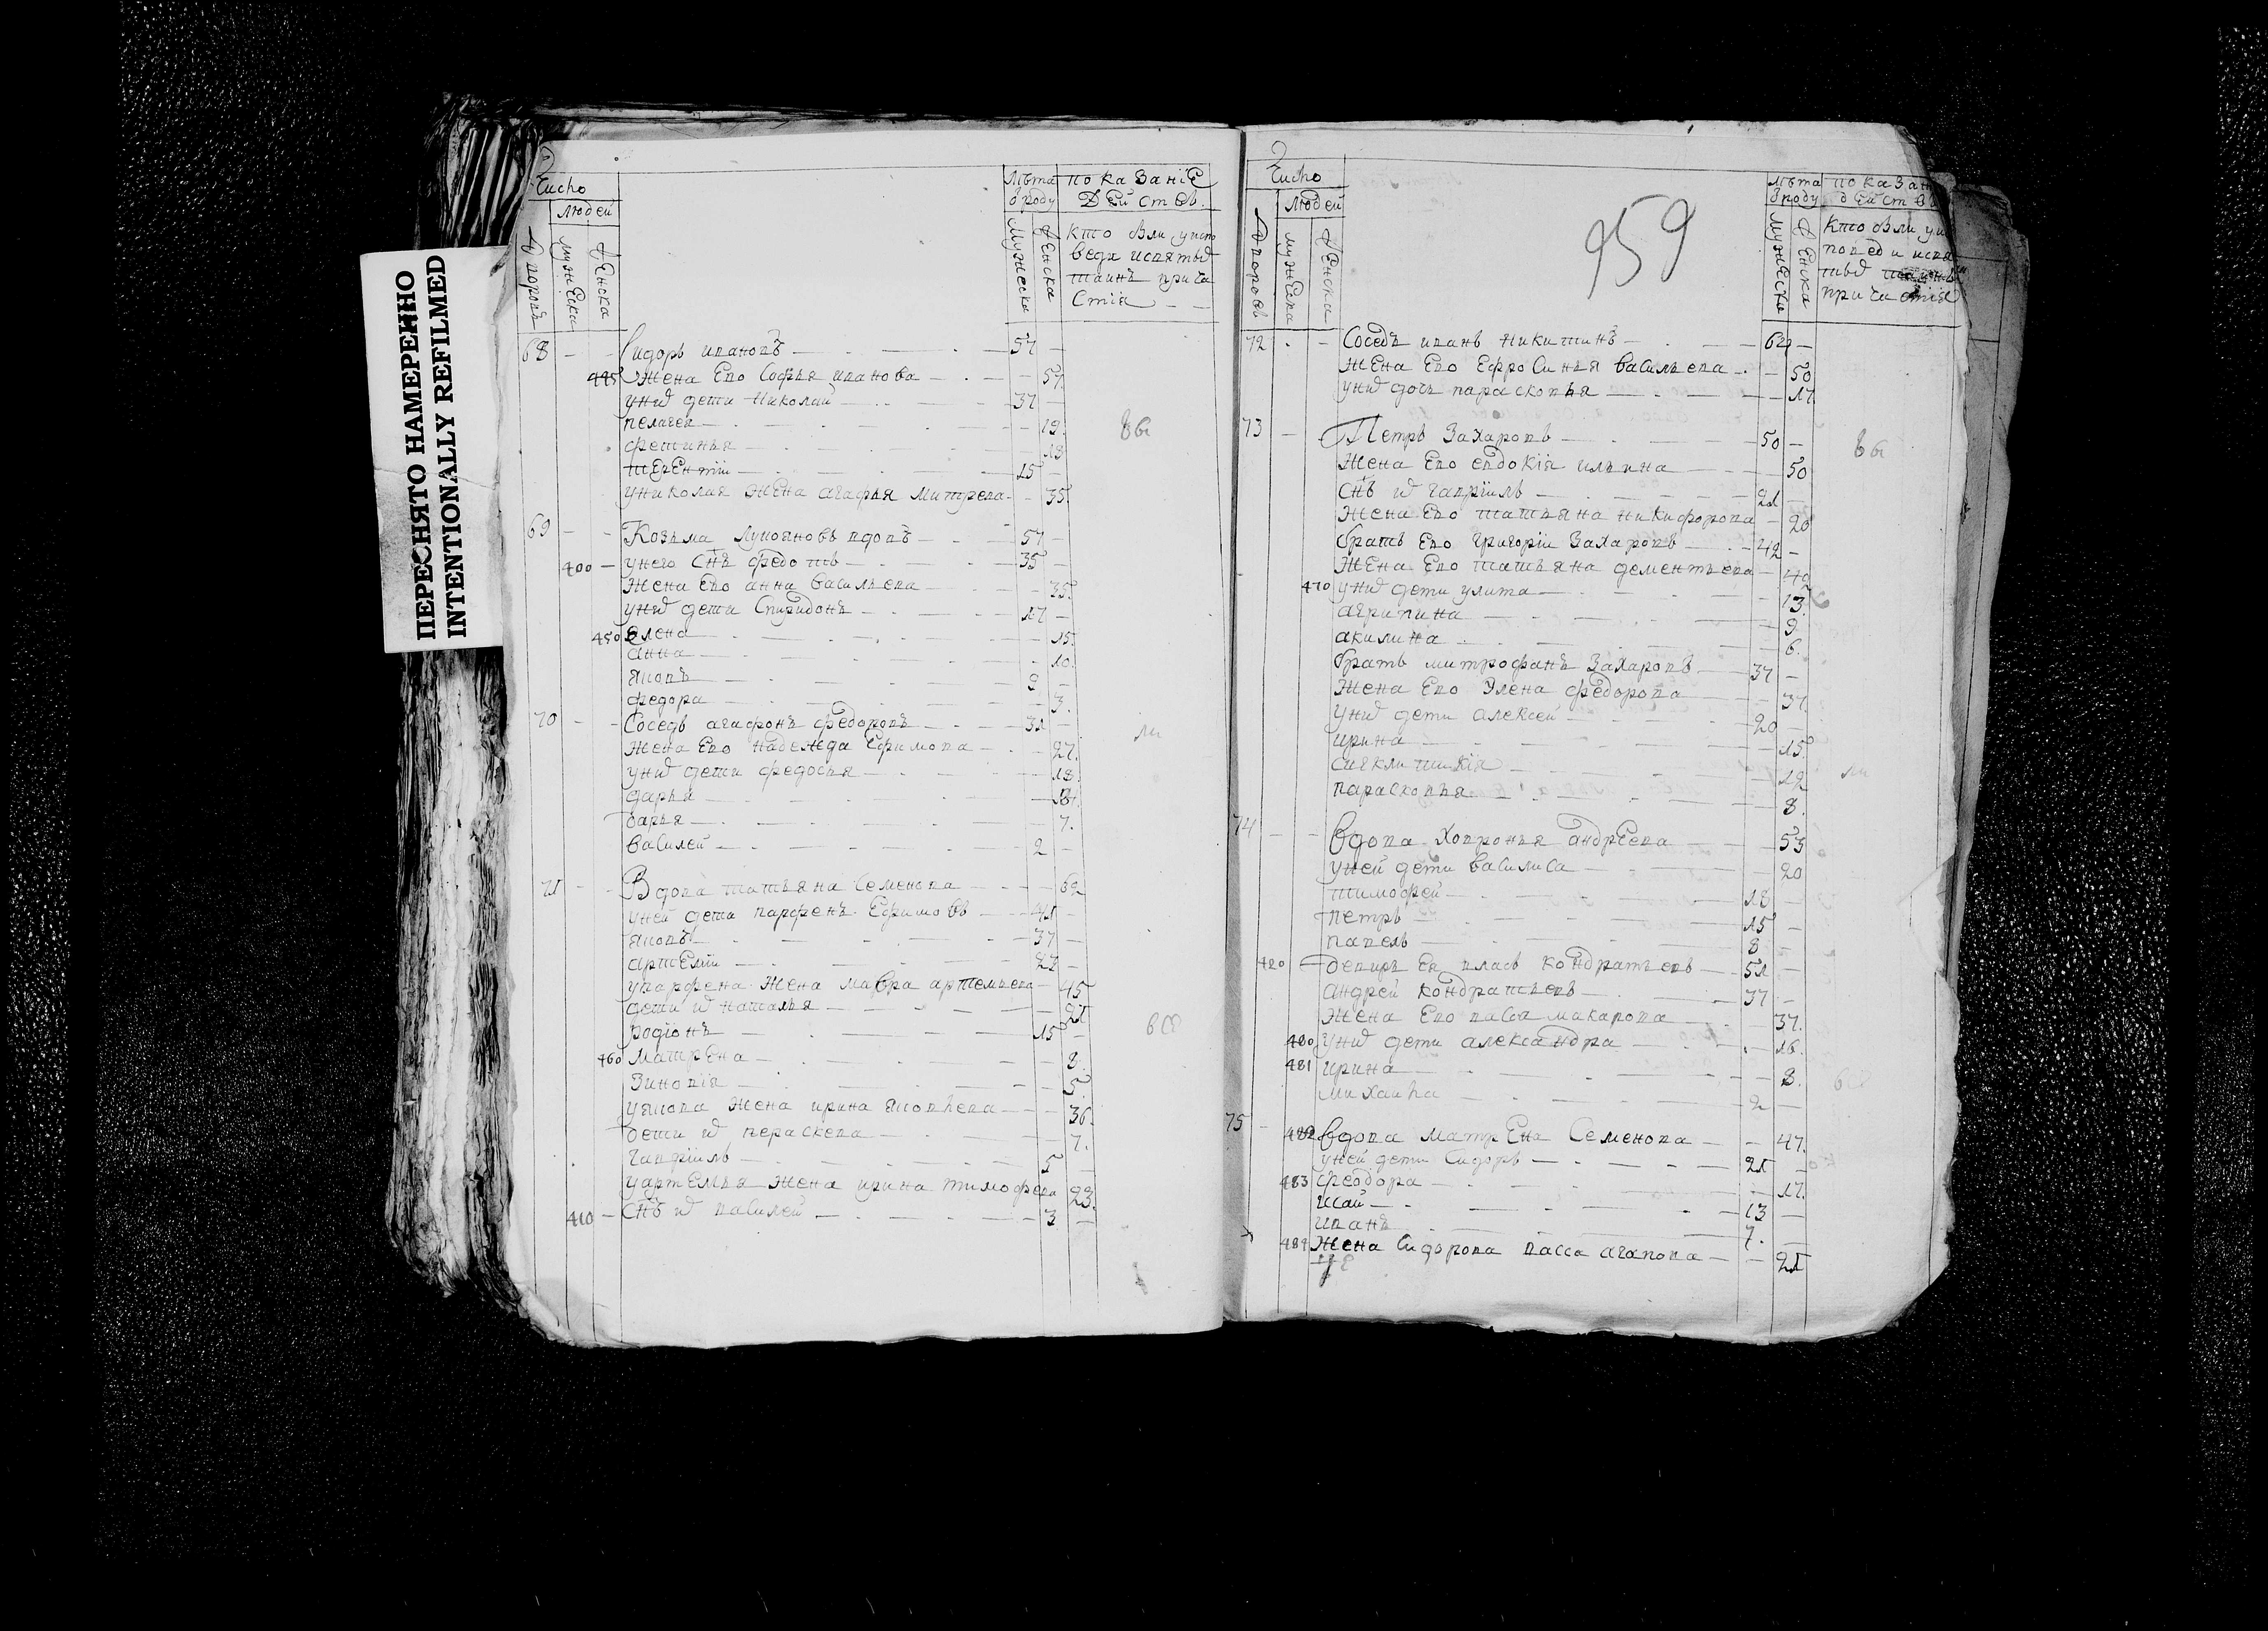 ПЕРЕСНЯТО НАМЕРЕННО
INTENTIONALLY REFILMED
Число
людей
дворовъ
мужеска
женска
лѣта
роду
мужеска
женска
показаніе
действъ
кто были у испо
веди и святыхъ
таинъ прича
стія
68 Сидоръ ивановъ 57
445 Жена Ево Софья иванова 57
у них дети Николай 37
пелагея 19
фетинья 18
терентіи 15
у николая жена агафья митрева 35
вы
69 Козьма Лукояновъ вдовъ 57
400 у него снъ федотъ 35
Жена Ево анна васильева 35
у них дети Спиридонъ 17
450 Елена 15
анна 10
яковъ 9
федора 3
70 Соседъ агафонъ федоровъ 31
жена Ево надежда Ефимова 27
у них дети федосья 18
дарья
варья 7
василей 2
ли
71 Вдова татьяна семенова 62
у ней дети парфенъ Ефимовъ 41
яковъ 37
артеміи 27
у парфена жена мавра артемьева 45
дети их наталья 21
родіонъ 15
460 Матрена 8
Зиновія 5
у якова жена ирина яковлева 36
дети их параскева 7
гавріилъ 5
у артемья жена ирина тимофева 23
410 снъ их василей 3
все
959
Число
людей
дворовъ
мужеска
женска
лѣта
роду
мужеска
женска
показан
действъ
кто были у ис
поведи и свя
тыхъ таинъ
причастія
72 Соседъ иванъ никитинъ 62
жена Ево Ефросинья васильева 50
у них дочь парасковья 17
73 Петръ Захаровъ 50
Жена Ево евдокія ильина 50
снъ их гавріилъ 21
Жена Ево татьяна никифорова 20
братъ Ево григоріи Захаровъ 42
Жена Ево татьяна дементьева 40
470 у них дети улита 13
агрипина 9
акилина 6
братъ митрофанъ Захаровъ 37
жена Ево Елена федорова 37
у них дети алексей 20
ирина 15
сигклитикія 12
парасковья 8
вы
ли
74 Вдова Ховронья андреева 53
у ней дети василиса 20
тимофей 18
петръ 15
павелъ 8
420 деверь Ея власъ кондратьевъ 51
андрей кондратьевъ 37
жена Ево васса макарова 37
480 у них дети александра 16
481 ирина 8
михаила 2
все
75
482 Вдова матрена Семенова 47
у ней дети Сидоръ 21
483 феодора 17
исай 13
иванъ 7
484 жена Сидорова васса агапова 21